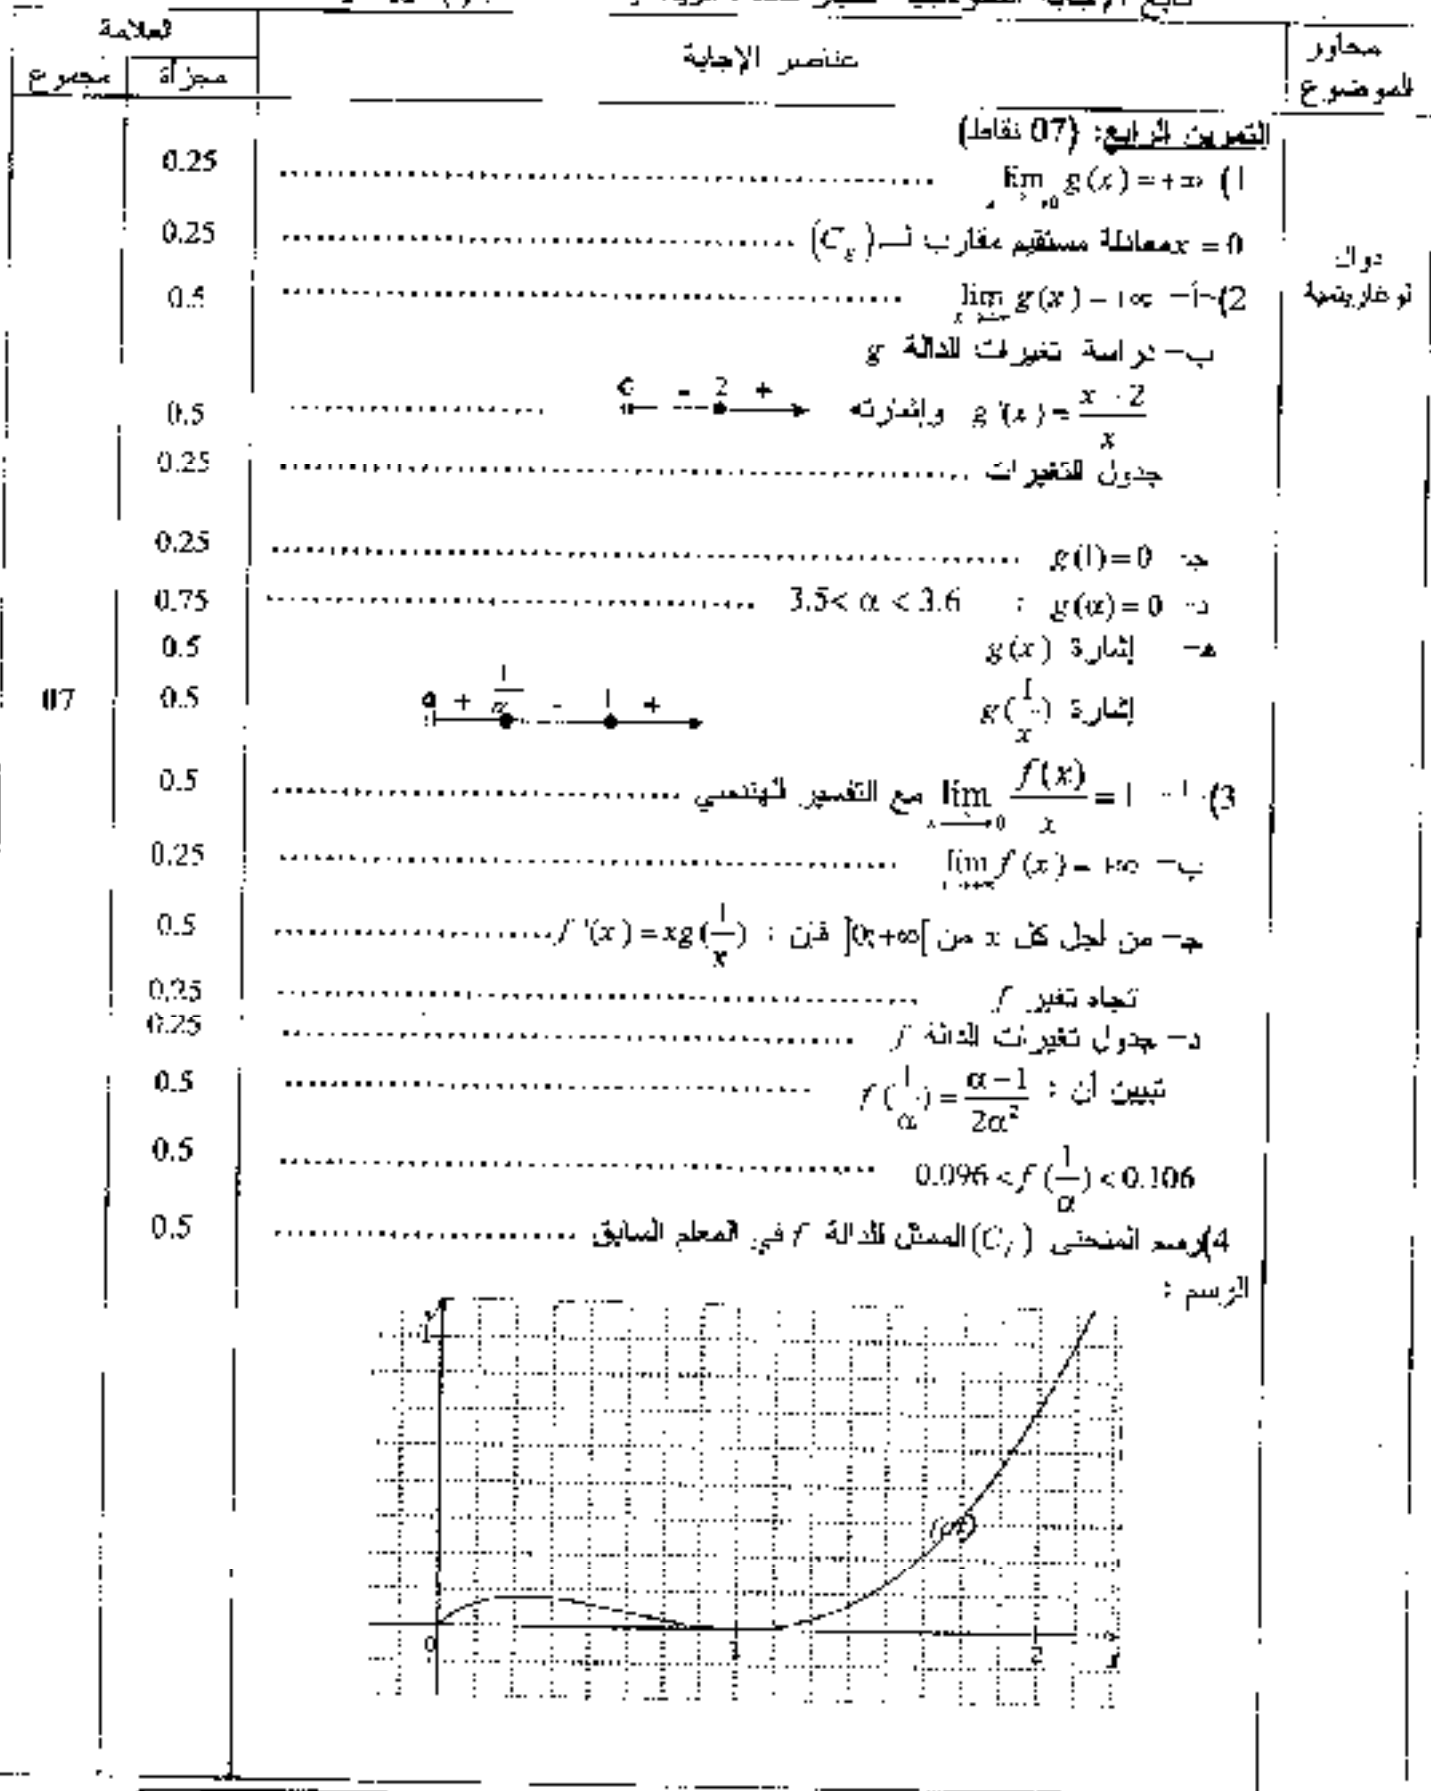 العلامة
محاور
الموضوع
عناصر الإجابة
مجزأة
مجموع
التمرين الرابع: (07 نقاط)
1) lim g(x) = +∞ ........ 0.25
x = 0 معادلة مستقيم مقارب لـ (C_g) ........ 0.25
دوال
لوغاريتمية
2)-أ- lim g(x) = +∞ ........ 0.5
ب- دراسة تغيرات الدالة g
g'(x) = (x - 2)/x وإشارته 0 - 2 + ........ 0.5
جدول التغيرات ........ 0.25
جـ- g(1) = 0 ........ 0.25
د- g(α) = 0 : 3.5 < α < 3.6 ........ 0.75
هـ- إشارة g(x) 0.5
إشارة g(1/x) 0 + 1/α - 1 + 0.5
07
3)-أ- lim f(x)/x = 1 x→0 مع التفسير الهندسي ........ 0.5
ب- lim f(x) = +∞ ........ 0.25
جـ- من أجل كل x من ]0;+∞[ فإن : f'(x) = xg(1/x) ........ 0.5
تجاه تغير f ........ 0.25
د- جدول تغيرات الدالة f ........ 0.25
تبيين أن : f(1/α) = (α-1)/2α² ........ 0.5
0.096 < f(1/α) < 0.106 ........ 0.5
4) رسم المنحنى (C_f) الممثل للدالة f في المعلم السابق ........ 0.5
الرسم :
y
1
0
1
2
x